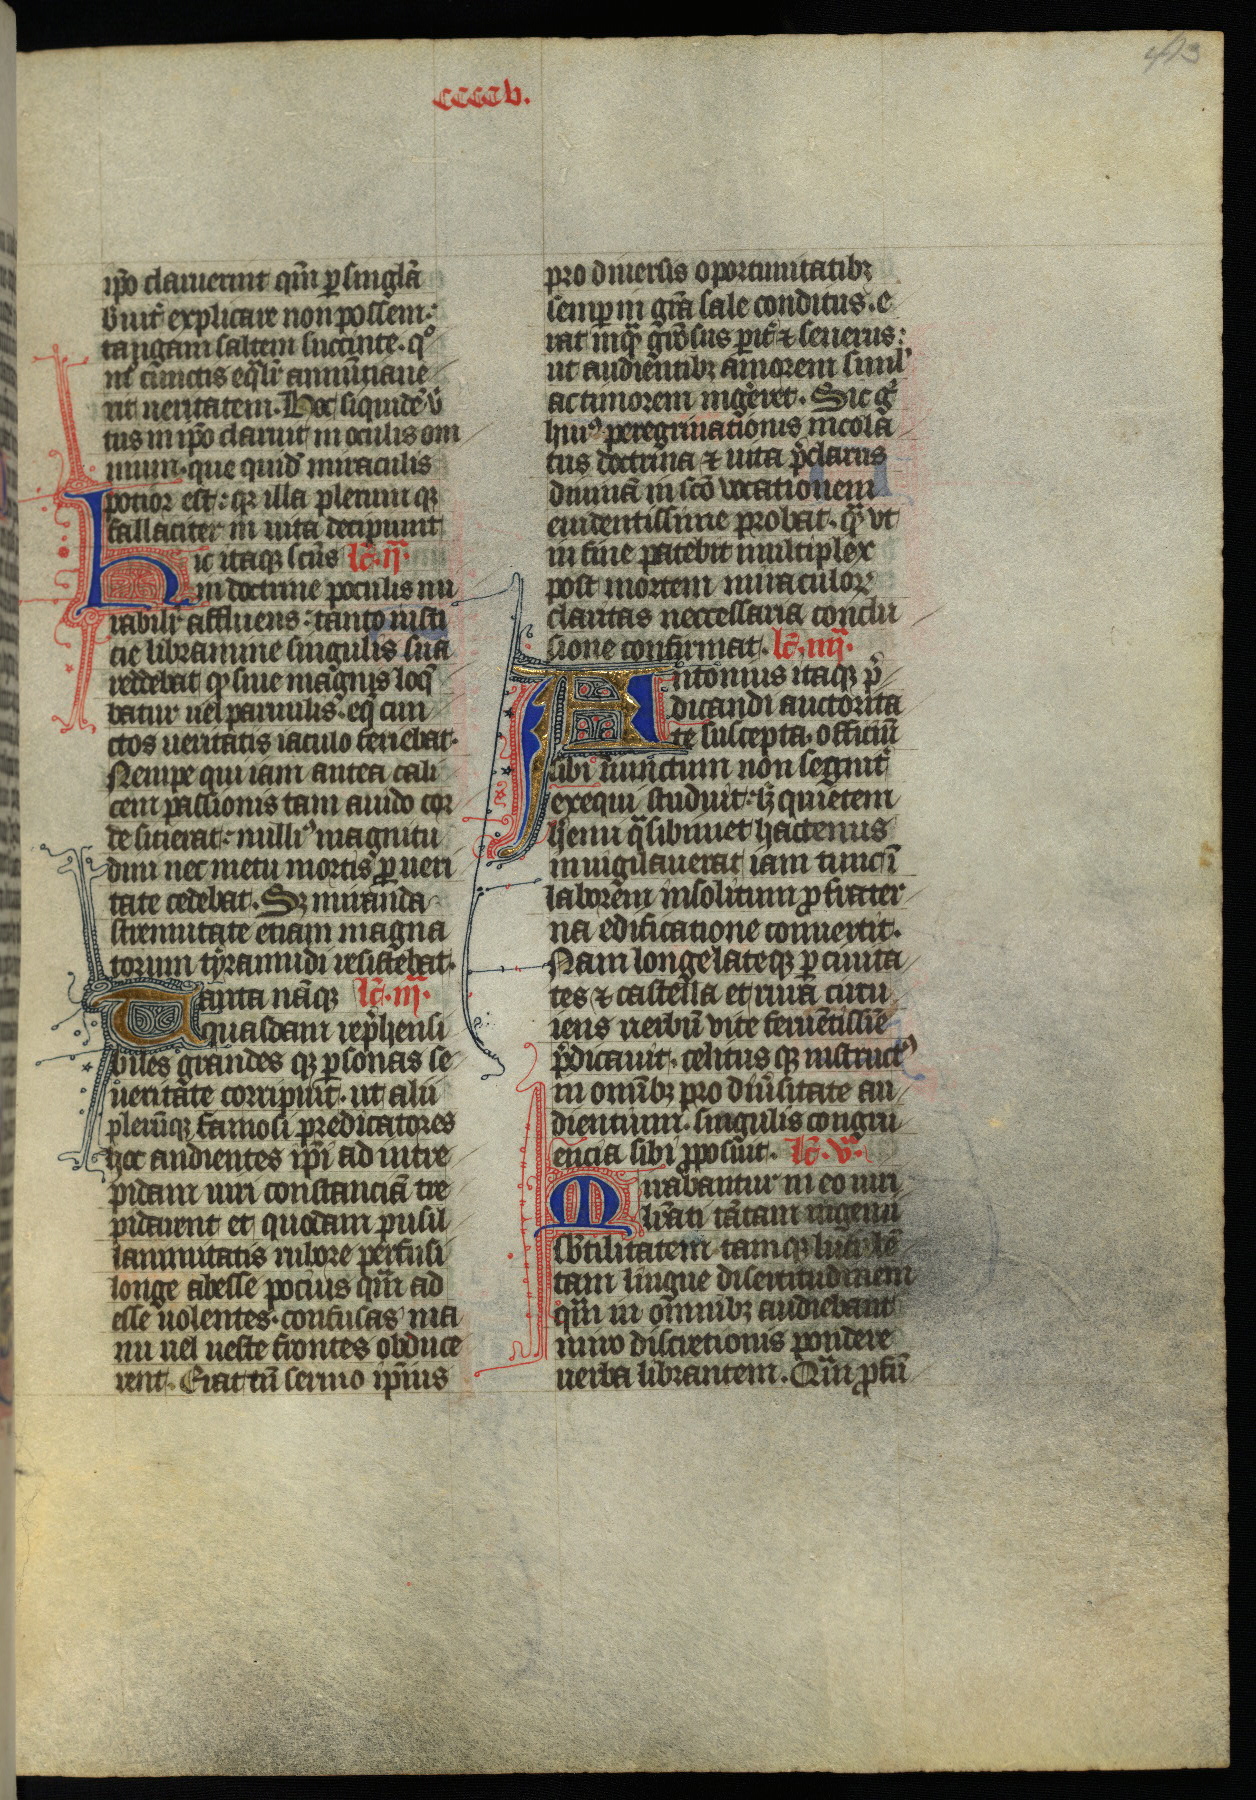 ccccv.
443
ip̄o claruerint qm̄ ꝑ singlā
buit᷑ explicare non possem:
tangam saltem succinte. qͦ
nt᷑ cunctis eq̄lit᷑ annūtiaue
rit ueritatem. Hoc siquidē v̾
tus in ip̄o claruit in oculis om
nium. que quid᷑ miraculis
potior est: qꝛ illa plerum qꝫ
fallaciter in uita decipiunt
Hic itaqꝫ scūs lc̄. ıı̄.
in doctrine poculis mi
rabilit᷑ affluens: tanto iusti
cie libramine singulis sua
reddebat ꝙ siue magnis loq̄
batur uel paruulis. eq̄ cun
ctos ueritatis iaculo feriebat.
Nempe qui iam antea cali
cem passionis tam auido cor
de sitierat: nulliꝰ magnitu
dini nec metu mortis ꝑ ueri
tate cedebat. Sꝫ miranda
strenuitate etiam magna
torum tyrannidi resistebat.
Tanta nāqꝫ lc̄. ııı̄.
quasdam rep̄hensi
biles grandes qꝫ ꝑsonas se
ueritate corripiuit. ut alii
plerūqꝫ famosi predicatores
hoc audientes ip̄i ad intre
pidam uiri constanciā tre
pidarent et quodam pusil
lanimitatis rubore perfusi
longe abesse pocius qm̄ ad
esse uolentes. confusas ma
nu uel ueste frontes obduce
rent. Erat tn̄ sermo ip̄ius
pro diuersis oportunitatibꝫ
semꝑ in gr̄a sale conditus. e
rat inqꝫ gr̄osus parit᷑ ⁊ seuerus:
ut audientibꝫ amorem simul
ac timorem ingereret. Sic gͦ
huiꝰ peregrinationis nicola
tus doctrina ⁊ uita p̄clarus
diuinā in sc̄o vocationem
euidentissime probat. q̄ꝫ vt
in fine patebit multiplex
post mortem miraculoꝝ
claritas neccessaria conclu
sione confirmat. lc̄. ıııı̄.
Antonius itaqꝫ p̄
dicandi auctorita
te suscepta. officiū
sibi iniunctum non segnit᷑
exequi studuit. sꝫ quietem
heremi q̄ sibimet hactenus
inuigilauerat iam tunc ı̄
laborem insolitum ꝓ frater
na edificatione conuertit.
Nam longe lateqꝫ ꝑ ciuita
tes ⁊ castella et rura circu
iens uerbū vite feruētissīe
p̄dicauit. celitus qꝫ instructꝰ
in omībꝫ pro diūsitate au
dientium. singulis congru
encia sibi ꝓposuit. lc̄. v̄.
Mirabantur in eo uiri
lr̄ati tātam ingenii
sbtilitatem tamqꝫ luculē
tam lingue disertitudinem
qm̄ in omnibꝫ audiebant
miro discretionis pondere
uerba librantem. Qm̄ ꝓfū